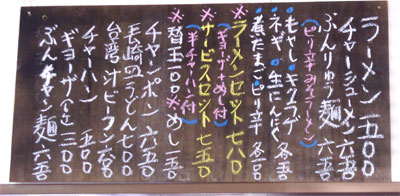 ラーメン 五〇〇
チャーシューメン 六五〇
ぶんりゅう麺 六五〇
(ピリ辛みそラーメン)
・もやし・キクラゲ
・ネギ・生にんにく 各五〇
・煮たまご・ピリ辛 各一〇〇
※ラーメンセット 七八〇
(ギョーザ+めし付)
※サービスセット 七五〇
(半チャーハン付)
※替玉一〇〇※めし一五〇
チャンポン 六五〇
長崎皿うどん 七〇〇
台湾汁ビーフン 六〇〇
チャーハン 五〇〇
ギョーザ(七ヶ) 三〇〇
ぶんチャン麺 六五〇